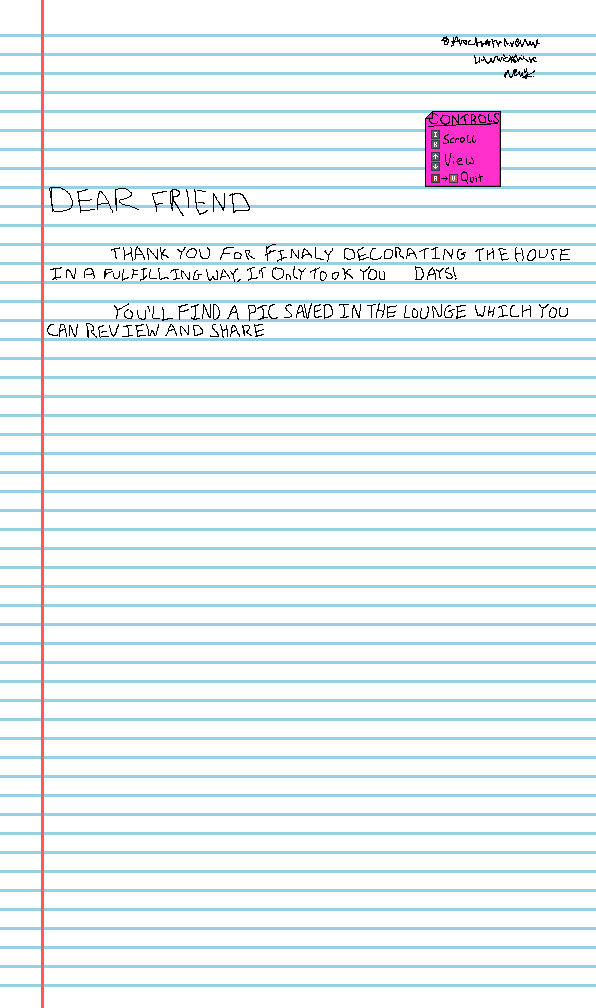 CONTROLS
I
K Scroll
↑
↓ View
A → U Quit
DEAR FRIEND
THANK YOU FOR FINALY DECORATING THE HOUSE
IN A FULFILLING WAY, IT ONLY TOOK YOU DAYS!
YOU'LL FIND A PIC SAVED IN THE LOUNGE WHICH YOU
CAN REVIEW AND SHARE